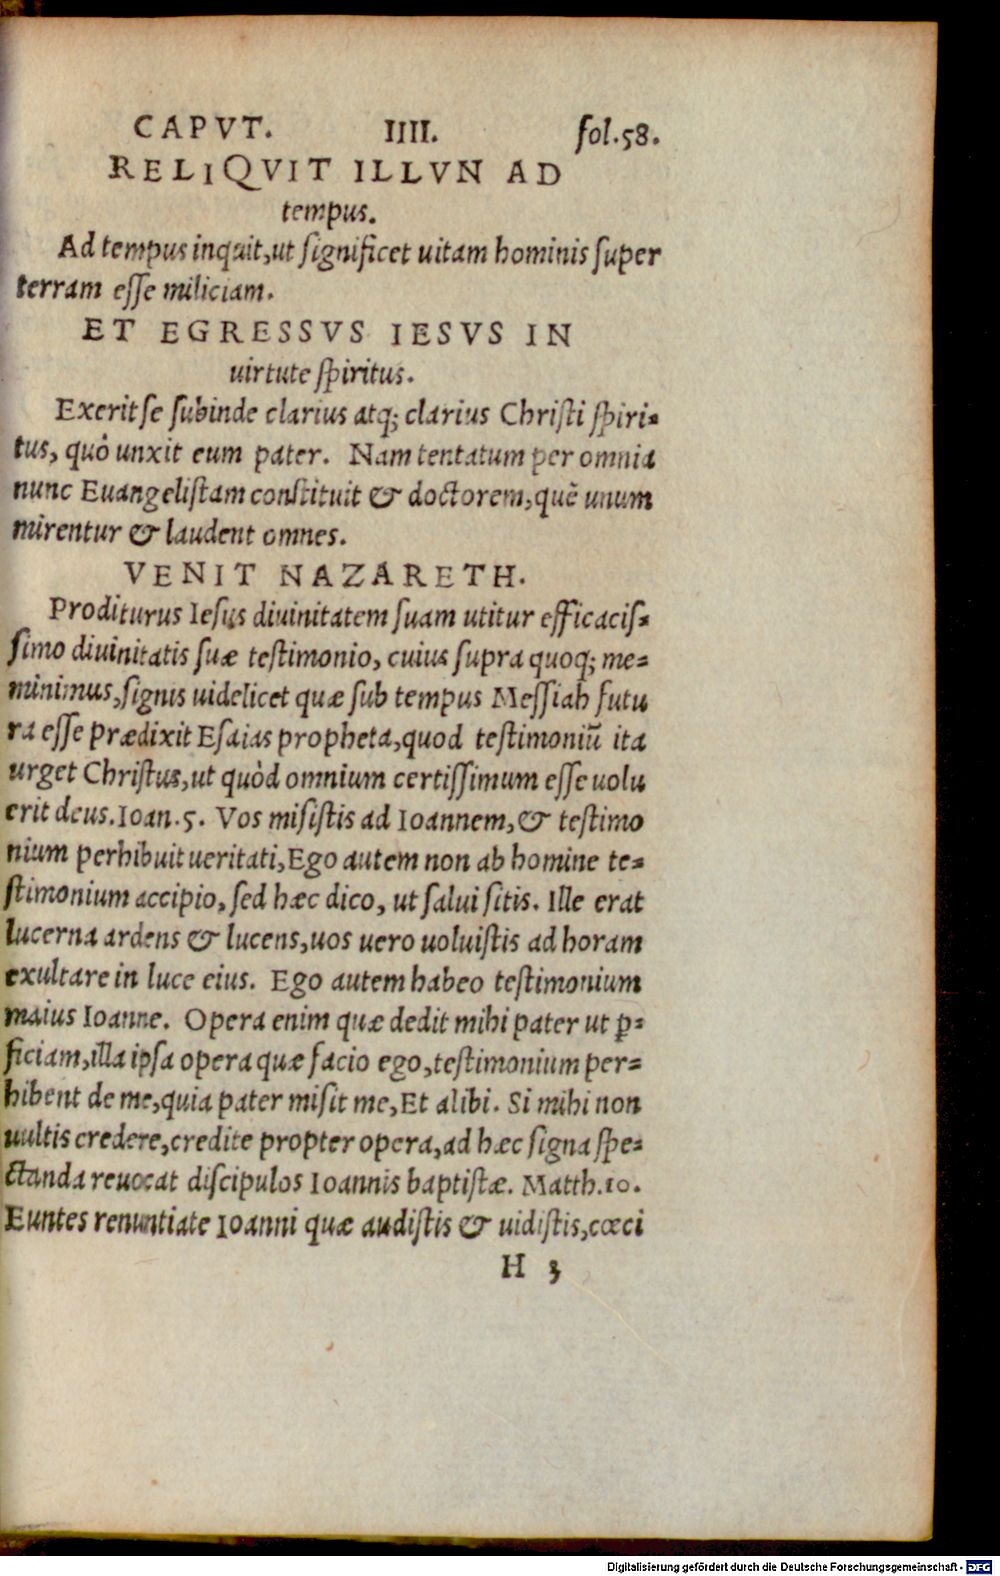 CAPVT. IIII. fol.58.
RELIQVIT ILLVN AD
tempus.
Ad tempus inquit,ut significet uitam hominis super
terram esse miliciam.
ET EGRESSVS IESVS IN
uirtute spiritus.
Exerit se subinde clarius atq; clarius Christi spiri-
tus, quô unxit eum pater. Nam tentatum per omnia
nunc Euangelistam constituit & doctorem,quẽ unum
mirentur & laudent omnes.
VENIT NAZARETH.
Proditurus Iesus diuinitatem suam utitur efficacis-
simo diuinitatis suæ testimonio, cuius supra quoq; me-
minimus,signis uidelicet quæ sub tempus Messiah futu
ra esse prædixit Esaias propheta,quod testimoniũ ita
urget Christus,ut quòd omnium certissimum esse uolu
erit deus.Ioan.5. Vos misistis ad Ioannem,& testimo
nium perhibuit ueritati,Ego autem non ab homine te-
stimonium accipio, sed hæc dico, ut salui sitis. Ille erat
lucerna ardens & lucens,uos uero uoluistis ad horam
exultare in luce eius. Ego autem habeo testimonium
maius Ioanne. Opera enim quæ dedit mihi pater ut ꝑ-
ficiam,illa ipsa opera quæ facio ego,testimonium per-
hibent de me,quia pater misit me,Et alibi. Si mihi non
uultis credere,credite propter opera,ad hæc signa spe-
ctanda reuocat discipulos Ioannis baptistæ. Matth.10.
Euntes renuntiate Ioanni quæ audistis & uidistis,cœci
H 3
Digitalisierung gefördert durch die Deutsche Forschungsgemeinschaft - DFG